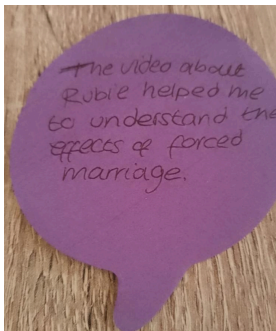 The video about
Rubie helped me
to understand the
effects of forced
marriage.